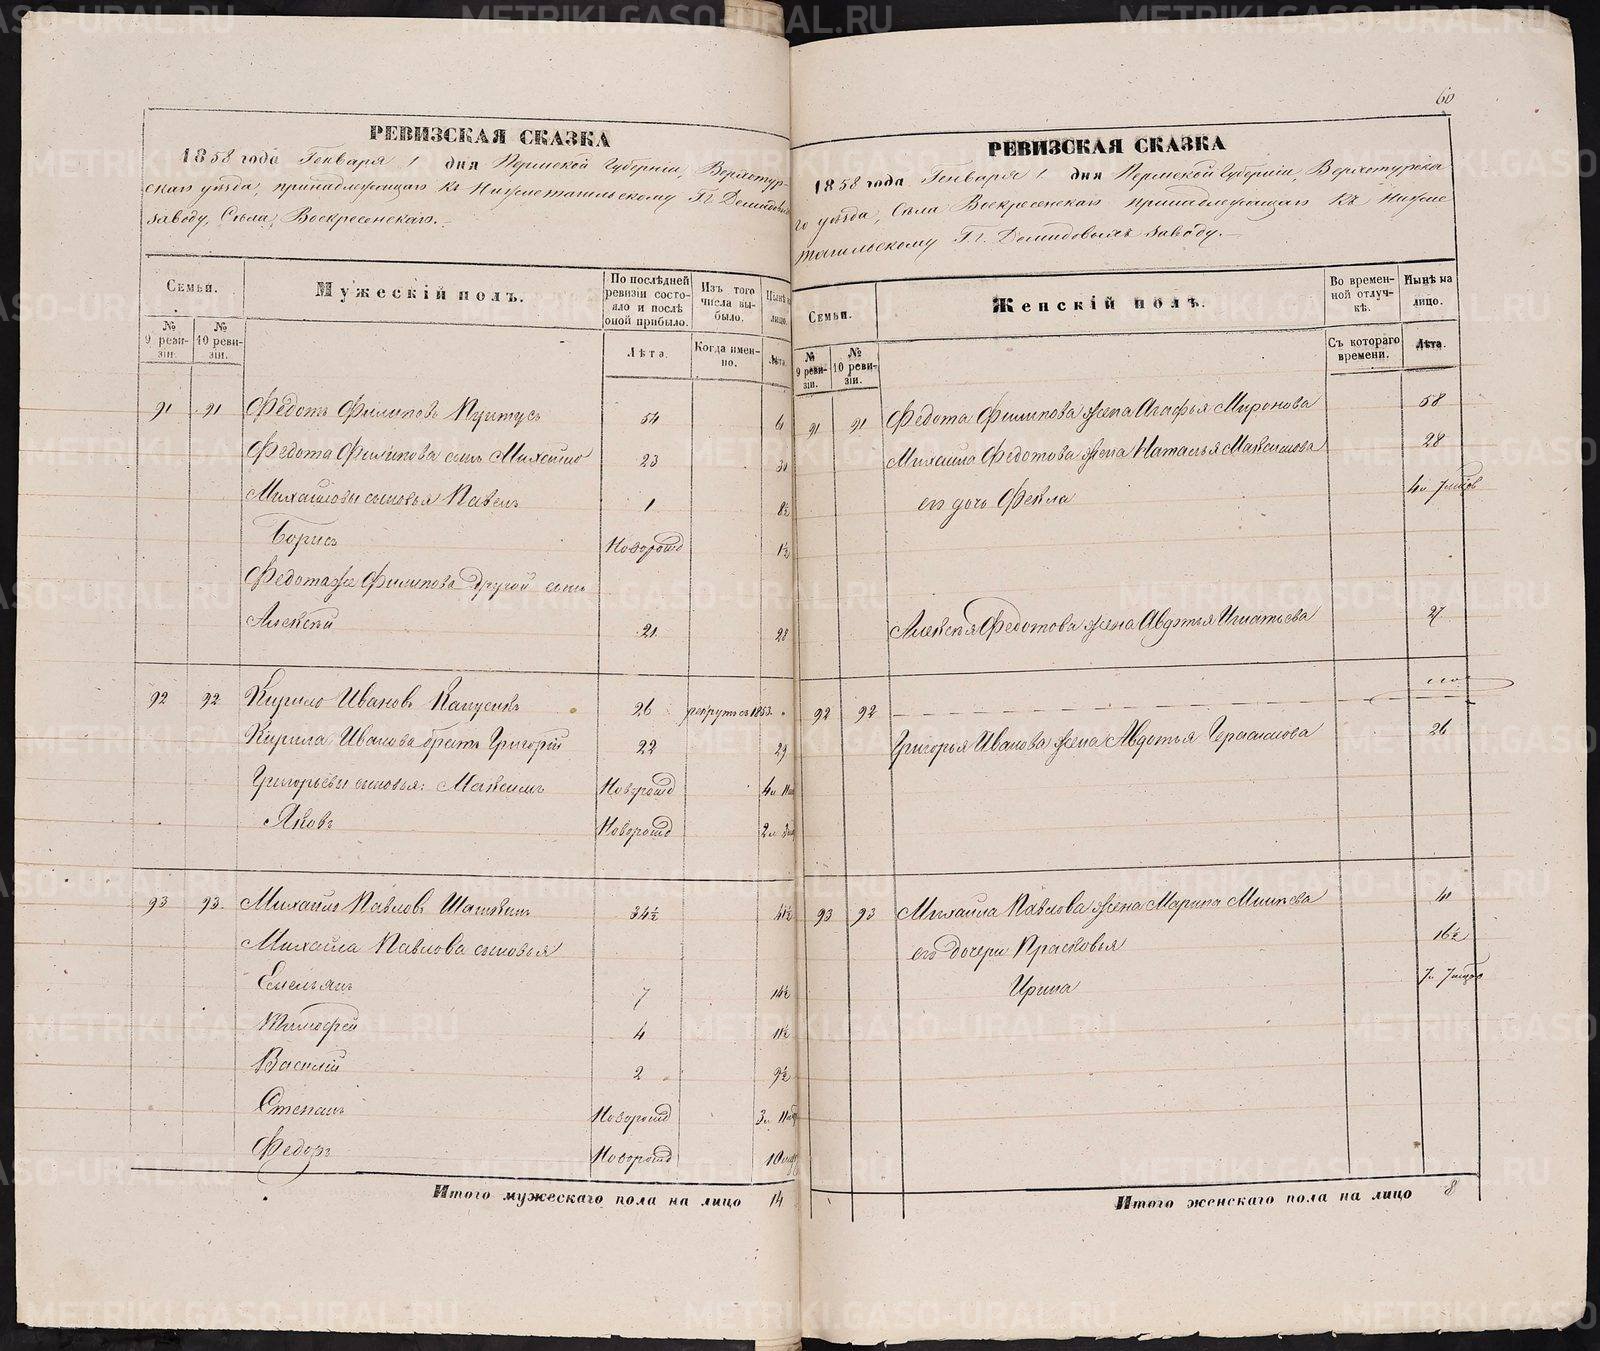 60
РЕВИЗСКАЯ СКАЗКА
1858 года Генваря 1 дня Пермской Губерніи, Верхотур-
скаго уѣзда, принадлежащаго къ Нижнетагильскому Гг. Демидовыхъ
заводу, Села Воскресенскаго.
Семьи.
Мужескій полъ.
По послѣдней ревизіи состояло и послѣ оной прибыло.
Изъ того числа выбыло.
Нынѣ на лицо.
№ 9 реви-зіи.
№ 10 реви-зіи.
Лѣта.
Когда имен-но.
Лѣта.
91 91 Федотъ Филиповъ 54
Федота Филипова сынъ Михайло 23 30
Михайловы сыновья Павелъ 1 8½
Борисъ Новорожд 1½
Федота же Филипова другой сынъ
Алексѣй 21 28
92 92 Кирило Ивановъ 26 рекрутъ съ 1853.
Кирила Иванова братъ Григорій 22 29
Григорьевы сыновья: Максимъ Новорожд
Яковъ Новорожд
93 93 Михайло Павловъ 34½ 41½
Михайла Павлова сыновья
Емельянъ 7 14½
Тимофей 4 11½
Василій 2 9½
Степанъ Новорожд
Федоръ Новорожд
Итого мужескаго пола на лицо 14
РЕВИЗСКАЯ СКАЗКА
1858 года Генваря 1 дня Пермской Губерніи, Верхотурска
го уѣзда, Села Воскресенскаго принадлежащаго къ Нижне
тагильскому Гг. Демидовыхъ заводу.
Семьи.
Женскій полъ.
Во времен-ной отлуч-кѣ.
Нынѣ на лицо.
№ 9 реви-зіи.
№ 10 реви-зіи.
Съ котораго времени.
Лѣта.
91 91 Федота Филипова жена Агафья Миронова 58
Михайла Федотова жена Наталья Максимова 28
его дочь Фекла 4 л 7 мцов
Алексѣя Федотова жена Авдотья Игнатьева 27
92 92
Григорья Иванова жена Авдотья Герасимова 26
93 93 Михайла Павлова жена Марина 41
его дочери Прасковья 16½
Ирина 7 л 7 мцов
Итого женскаго пола на лицо 8
METRIKI.GASO-URAL.RU